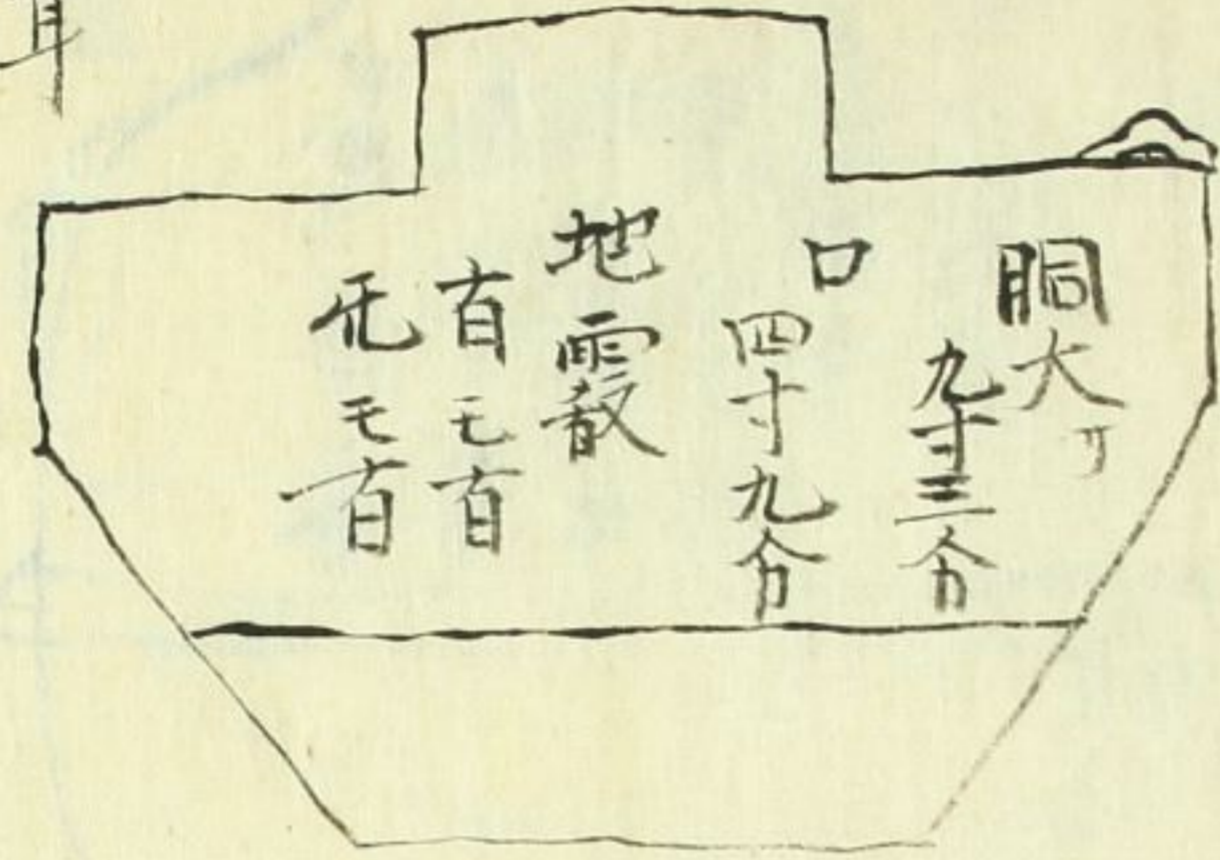 胴大サ
九寸三分
口
四寸九分
地霰
百モ百
モ百